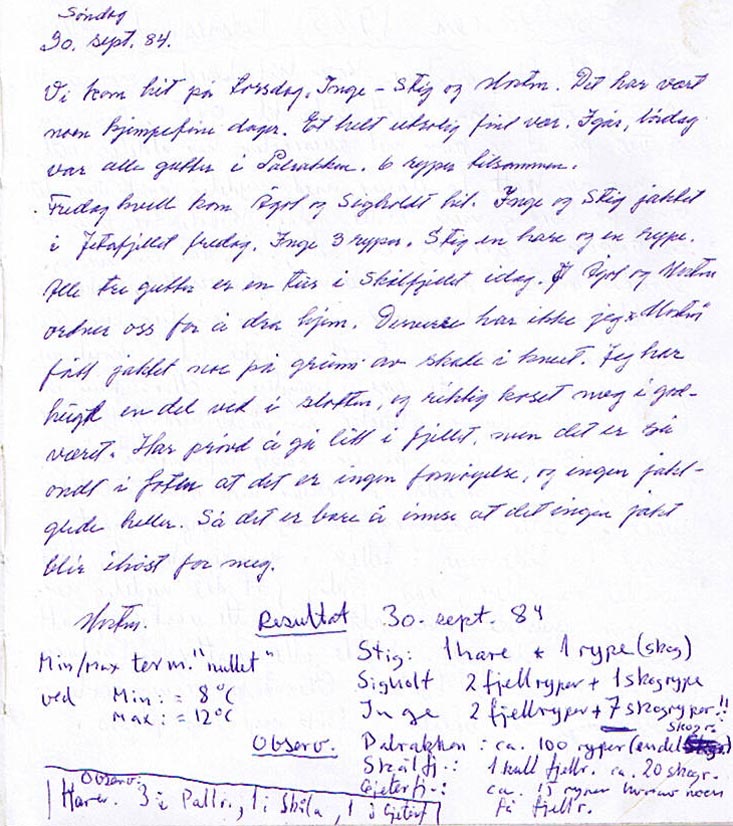 Søndag
30. sept. 84.
Vi kom hit på torsdag, Inge - Stig og Mostn. Det har vært
noen kjempefine dager. Et helt utrolig fint vær. Igår, lørdag
var alle gutter i Palrakken. 6 ryper tilsammen.
Fredag kveld kom og Sigholdt hit. Inge og Stig jaktet
i fredag. Inge 3 ryper. Stig en hare og en rype.
Alle tre gutter er en tur i Skålfjellet idag. og Mostn
ordner oss for å dra hjem. har ikke jeg
fått jaktet noe på grunn av skade i kneet. Jeg har
hugt en del ved i slotten, og riktig koset meg i god-
været. Har prøvd å gå litt i fjellet, men det er så
ondt i foten at det er ingen fornøyelse, og ingen jakt-
glede heller. Så det er bare å innse at det ingen jakt
blir ihøst for meg.
Mostn.
Resultat 30. sept. 84
Min/Max term. "nullet"
ved Min: = 8°C
Max: = 12°C
Stig: 1 hare + 1 rype (skog)
Sigholt 2 fjellryper + 1 skogrype
Inge 2 fjellryper + 7 skogryper!!
Observ. Palrakken: ca. 100 ryper (endel skogr.
Skålfj.: 1 kull fjellr. ca. 20 skogr.
Gjeterfj.: ca. 15 ryper hvorav noen
få fjellr.
Observ:
Harer. 3 i Pallr., 1 i Skåla, 1 i Gjeterf